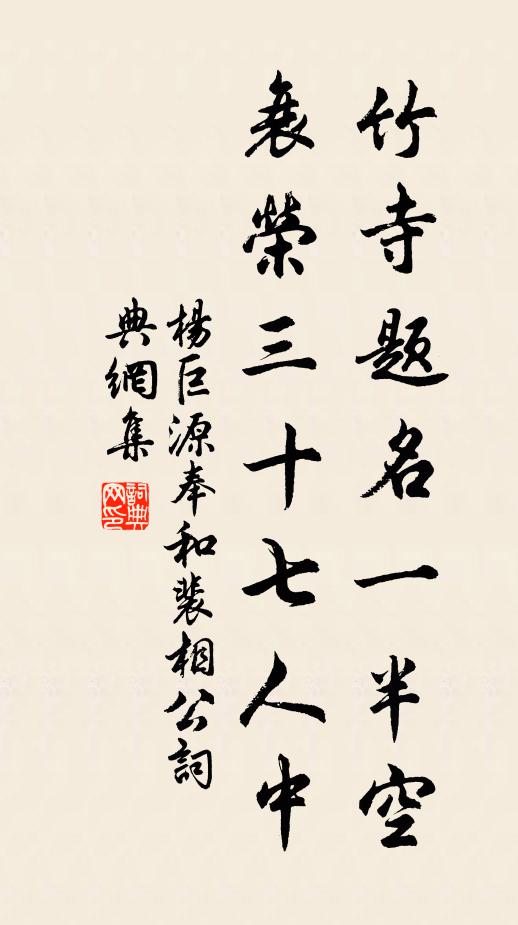 竹寺题名一半空
衰榮三十七人中
楊巨源奉和裴相公詞
典網集
詞典网印